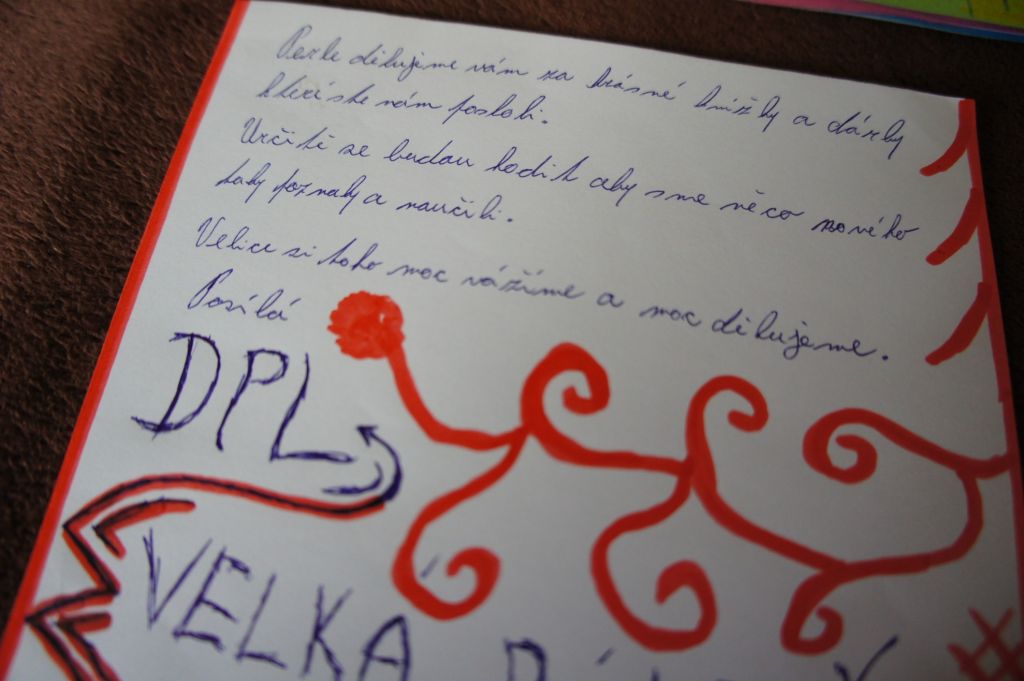 děkujeme vám za krásné knížky a dárky
které jste nám poslali.
Určitě se budou hodit aby sme něco nového
taky poznaly a naučili.
Velice si toho moc vážíme a moc děkujeme.
Posílá
DPL
VELKÁ